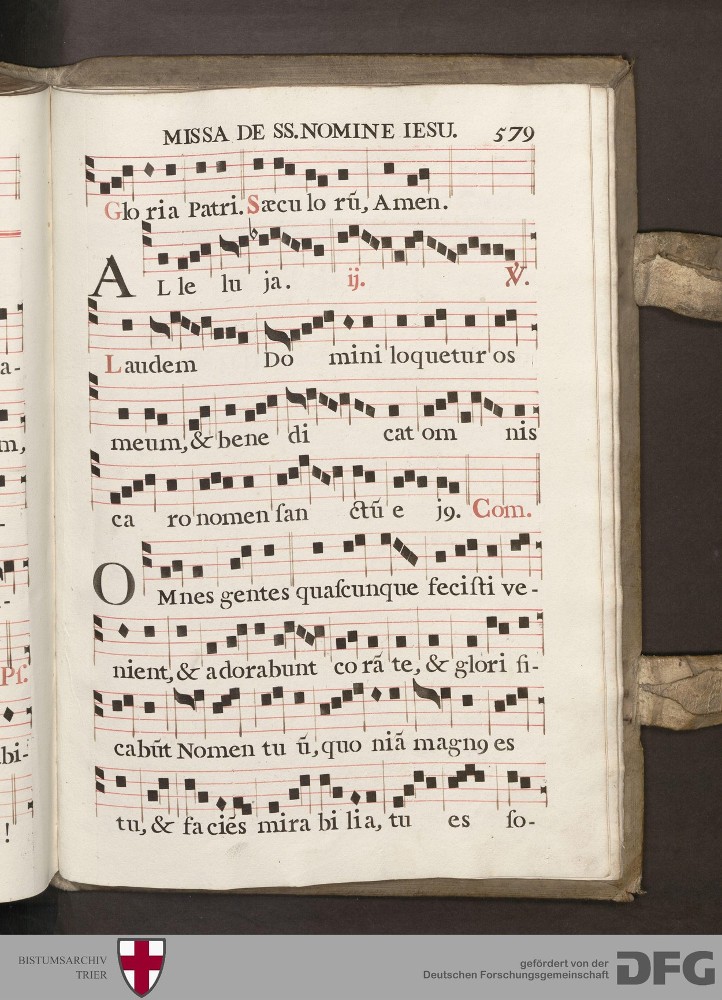 MISSA DE SS. NOMINE IESU. 579
Glo ria Patri. Sæcu lo rũ, Amen.
A L le lu ja. ij. ℣.
Laudem Do mini loquetur os
meum, & bene di cat om nis
ca ro nomen ſan ctũ e j9. Com.
O Mnes gentes quaſcunque feciſti ve-
nient, & adorabunt co rã te, & glori fi-
cabũt Nomen tu ũ, quo niã magn9 es
tu, & fa ciẽs mira bi lia, tu es ſo-
a-
m,
-
-
Pſ.
bi-
!
BISTUMSARCHIV
TRIER
gefördert von der
Deutschen Forschungsgemeinschaft
DFG